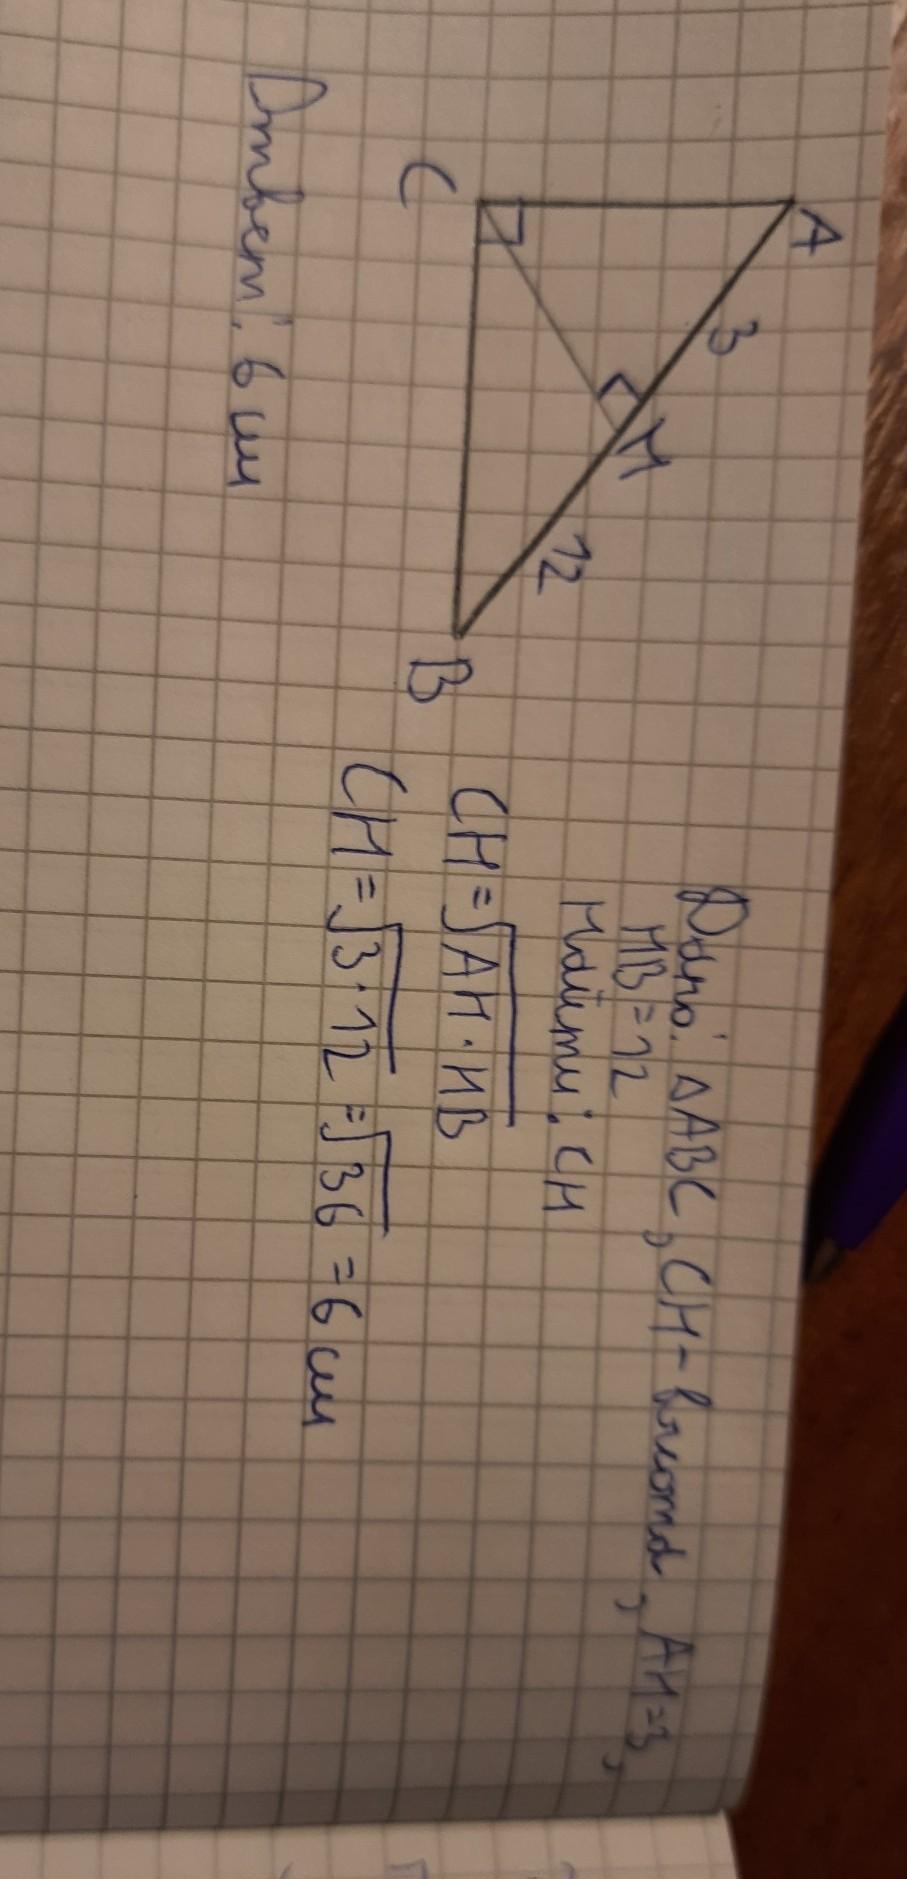 A
3
H
12
C
B
Дано: △ABC, CH - высота, AH=3,
HB = 12
Найти: CH
CH = √AH · HB
CH = √3 · 12 = √36 = 6 см
Ответ: 6 см